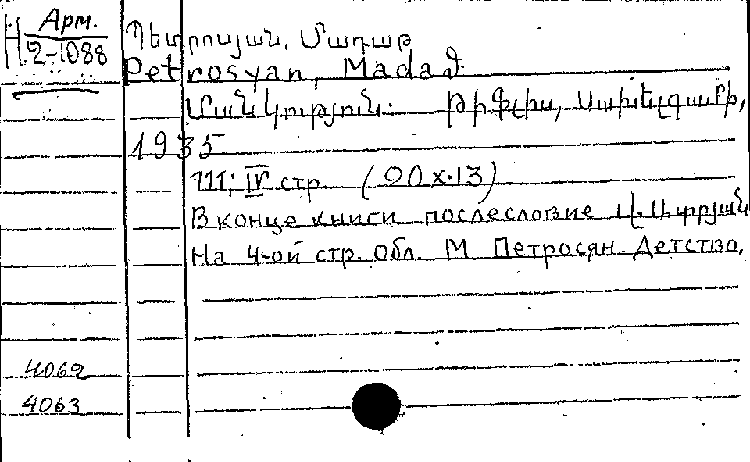 Арм.
H 2-1088
Պետրոսյան, Մադաթ
Petrosyan, Madat
Մանկություն: Թիֆլիս, Սախելգամի,
1935
111; IV стр. (20x13)
В конце книги послесловие
На 4-ой стр. обл. М Петросян. Детство.
4062
4063